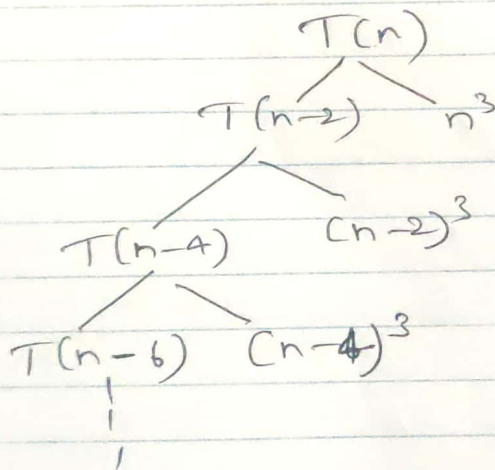 T(n)
T(n-2) n³
T(n-4) (n-2)³
T(n-6) (n-4)³